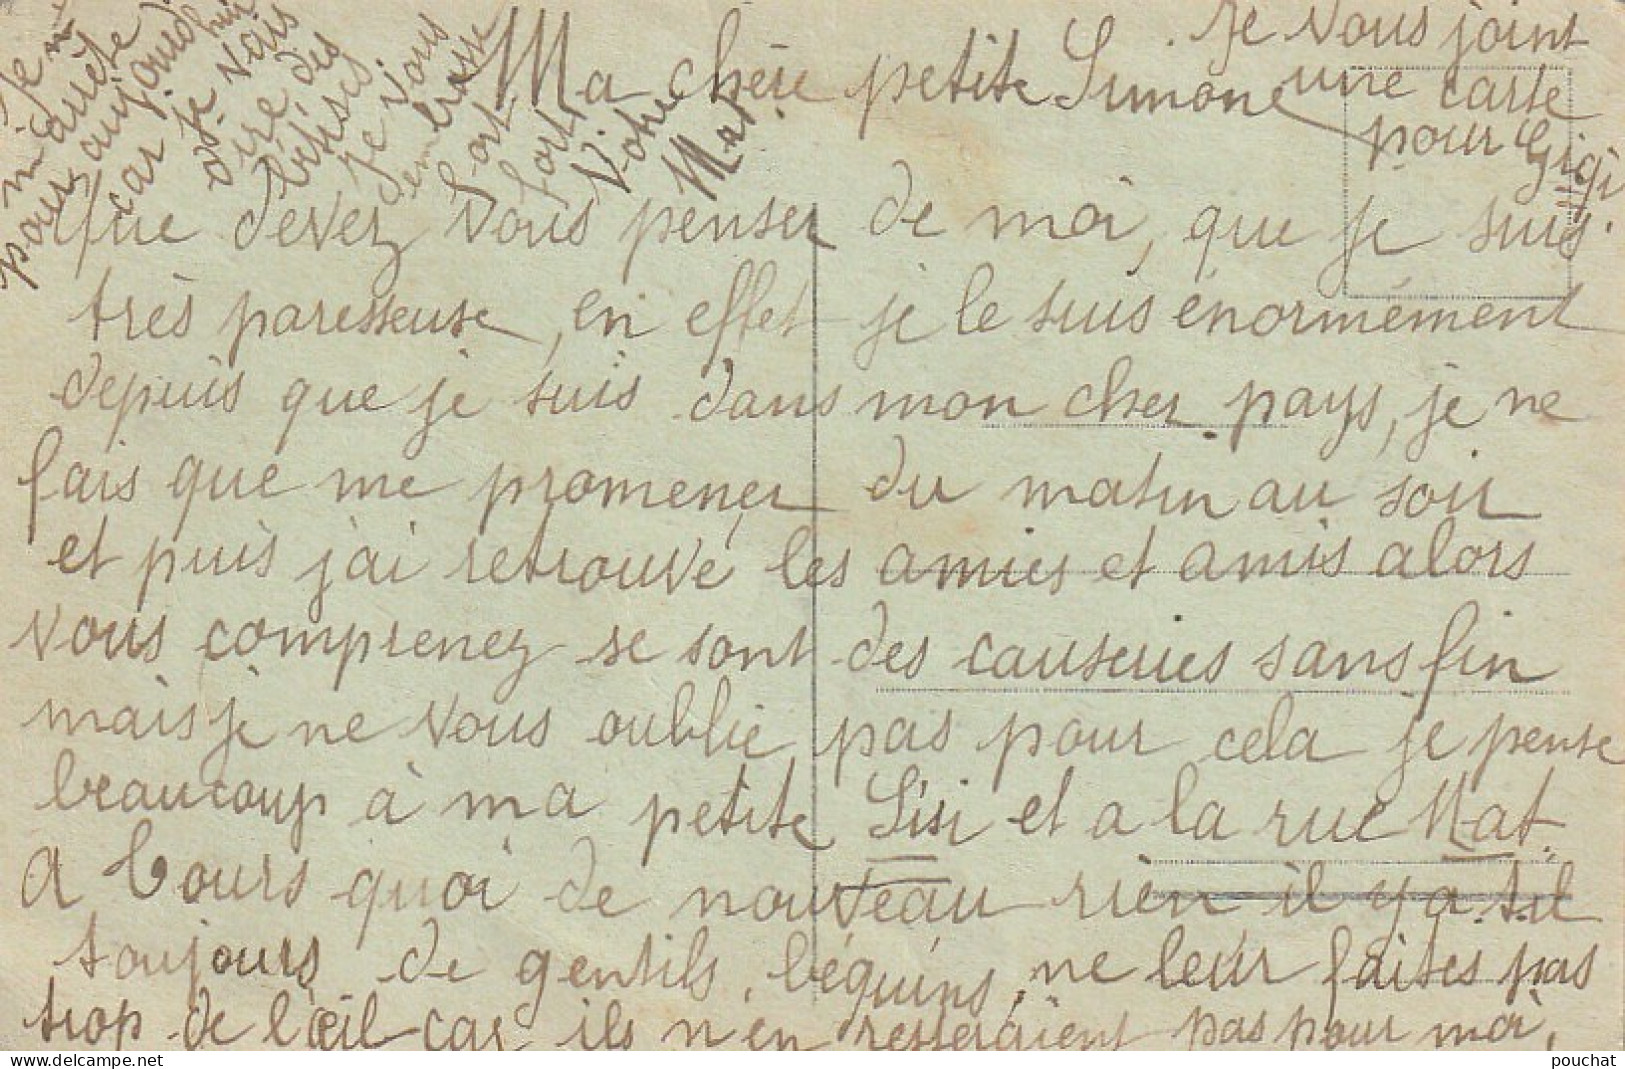 Ma chère petite Simone
Que devez vous penser de moi, que je suis
très paresseuse, en effet je le suis énormément
depuis que je suis dans mon cher pays, je ne
fais que me promener du matin au soir
et puis j'ai retrouvé les amies et amis alors
vous comprenez se sont des causeries sans fin
mais je ne vous oublie pas pour cela je pense
beaucoup à ma petite Sisi et a la rue Nat.
A Tours quoi de nouveau rien il y a til
toujours de gentils béguins, ne leur faites pas
trop de l'œil car ils n'en resteraient pas pour moi,
je
m'arrête
pour aujourdhui
car je vais
dire des
bêtises
je vous
embrasse
fort
fort
Votre
Mat.
Je vous joint
une carte
pour Gigi
pouchat